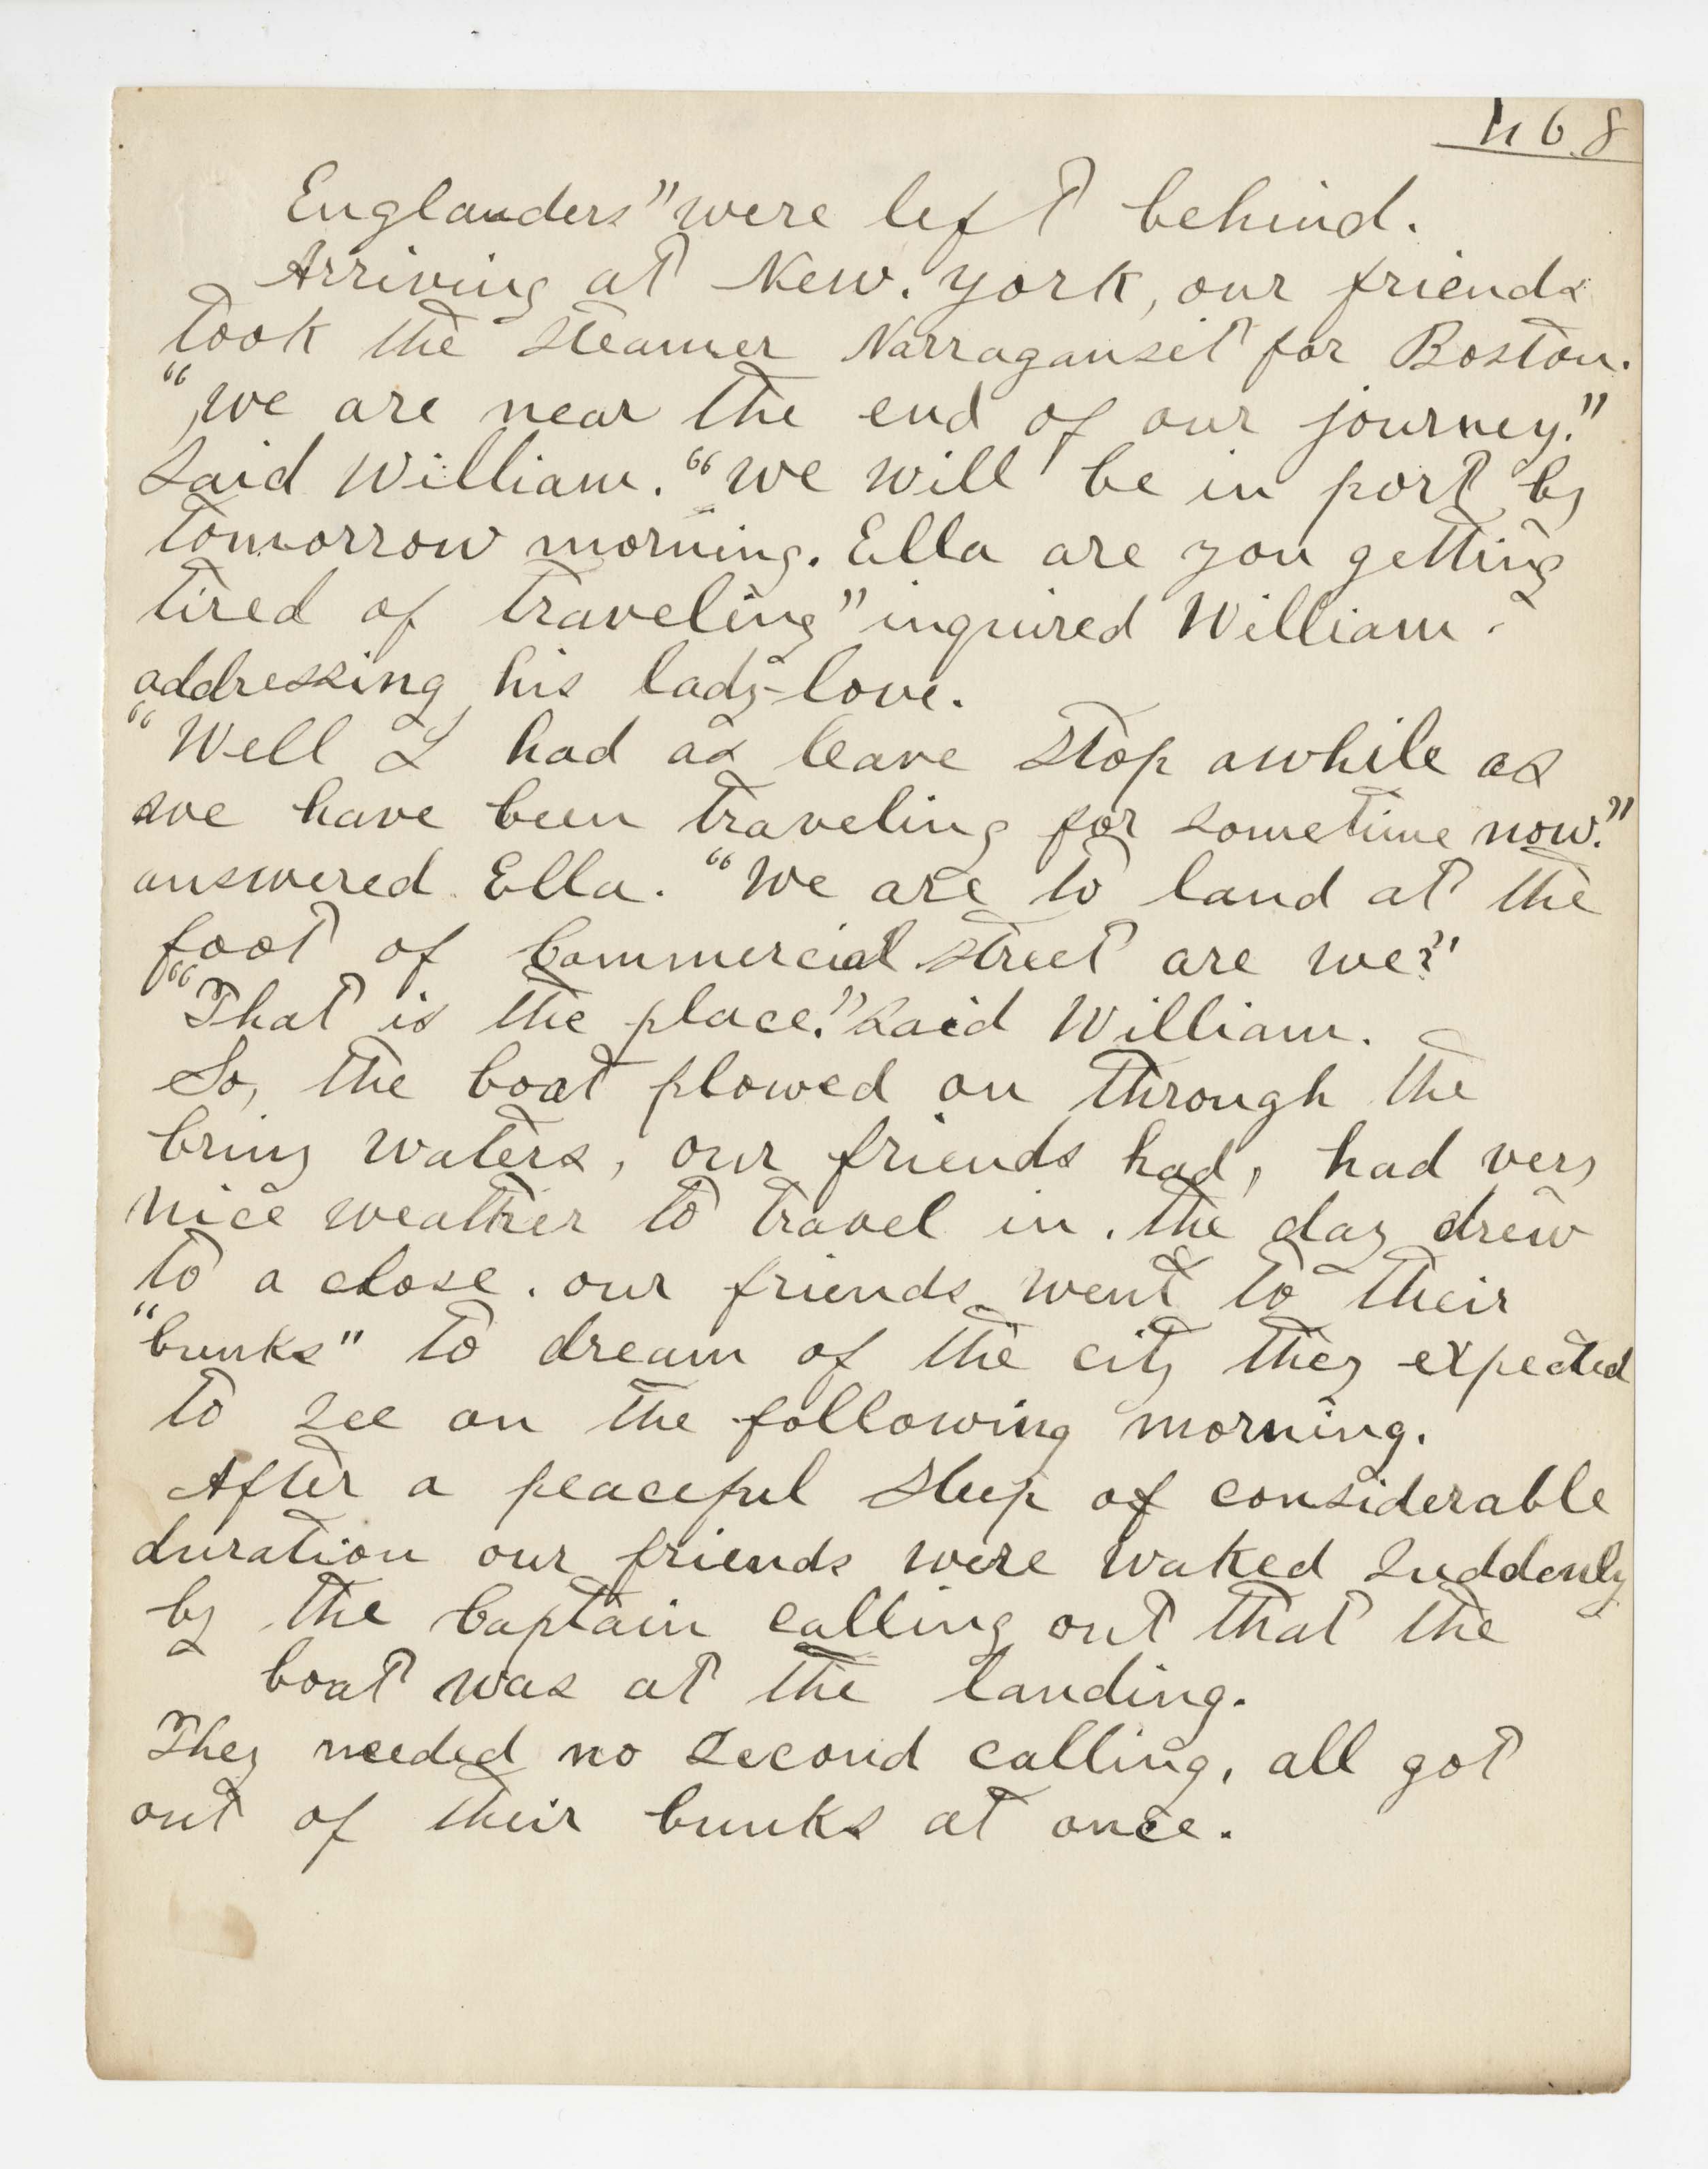 468
Englanders" were left behind.
Arriving at New. York, our friends
took the steamer Narraganset for Boston.
"we are near the end of our journey."
said William. "we will be in port by
tomorrow morning. Ella are you getting
tired of traveling" inquired William -
addressing his lady-love.
"Well I had as leave stop awhile as
we have been traveling for sometime now."
answered Ella. "We are to land at the
foot of Commercial street are we?"
"That is the place." said William.
So, the boat plowed on through the
briny waters, our friends had, had very
nice weather to travel in. the day drew
to a close. our friends went to their
"bunks" to dream of the city they expected
to see on the following morning.
After a peaceful sleep of considerable
duration our friends were waked suddenly
by the Captain calling out that the
boat was at the landing.
They needed no second calling, all got
out of their bunks at once.